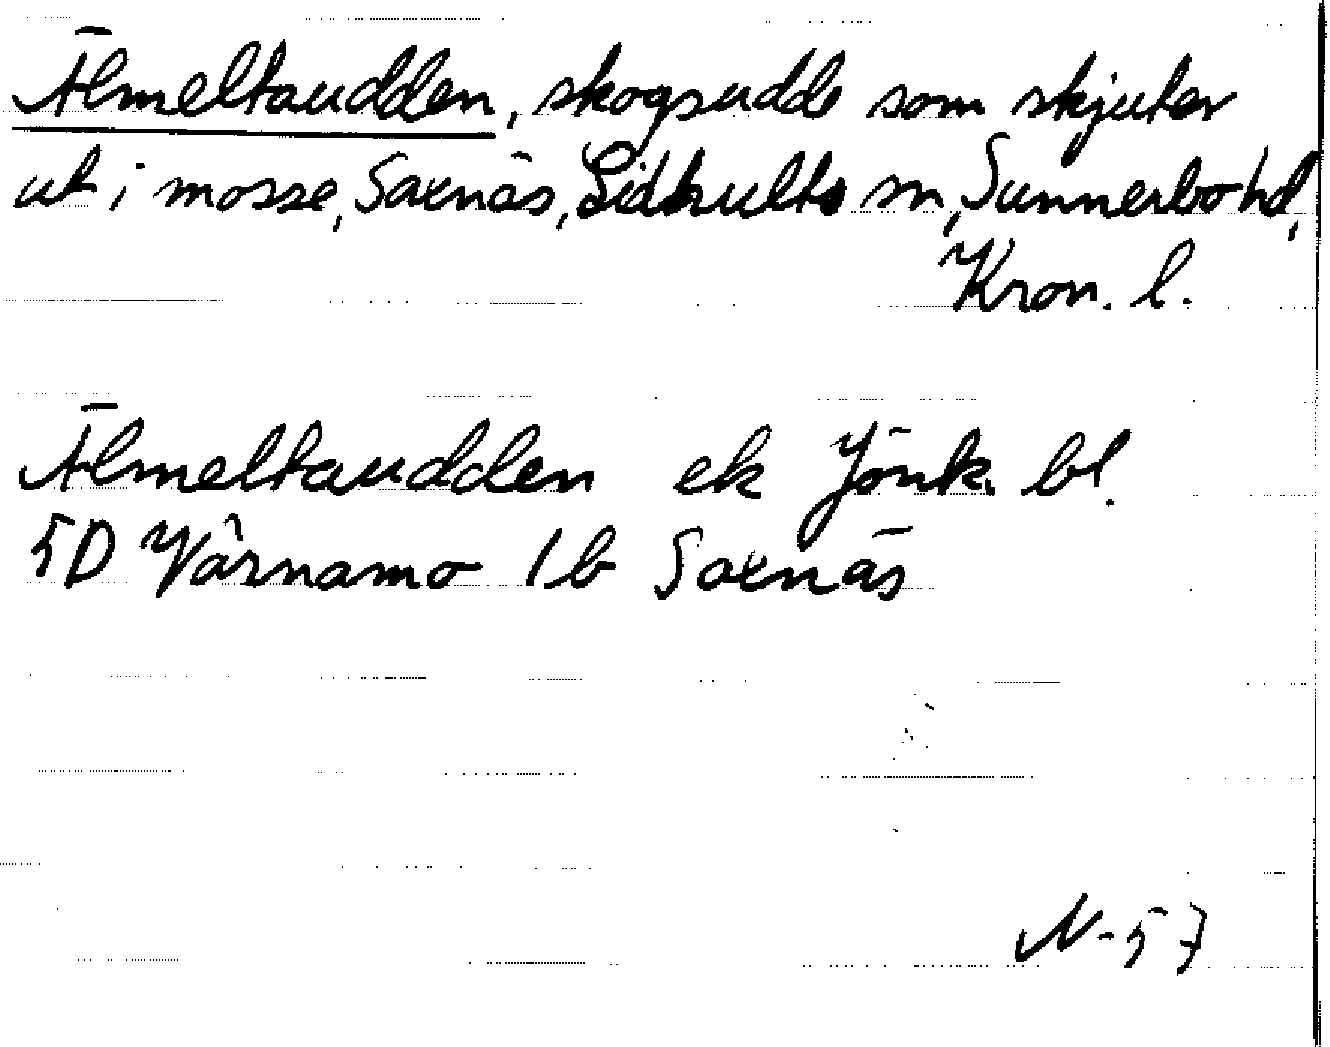 Älmeltaudden, skogsudde som skjuter
ut i mosse, Saxnäs, Lidhults sn, Sunnerbo hd,
Kron. l.
Älmeltaudden ek Jönk. bl.
5D Värnamo 1b Saxnäs
N-57